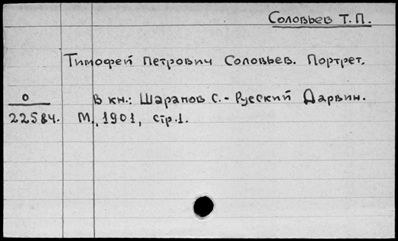 Соловьев Т.П.
Тимофей Петрович Соловьев. Портрет.
О В кн.: Шарапов С. - Русский Дарвин.
22584. М., 1901, стр.1.